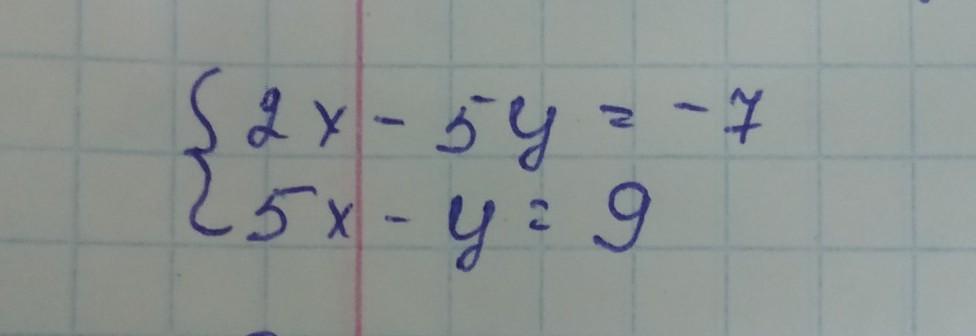 2x - 5y = -7
5x - y = 9